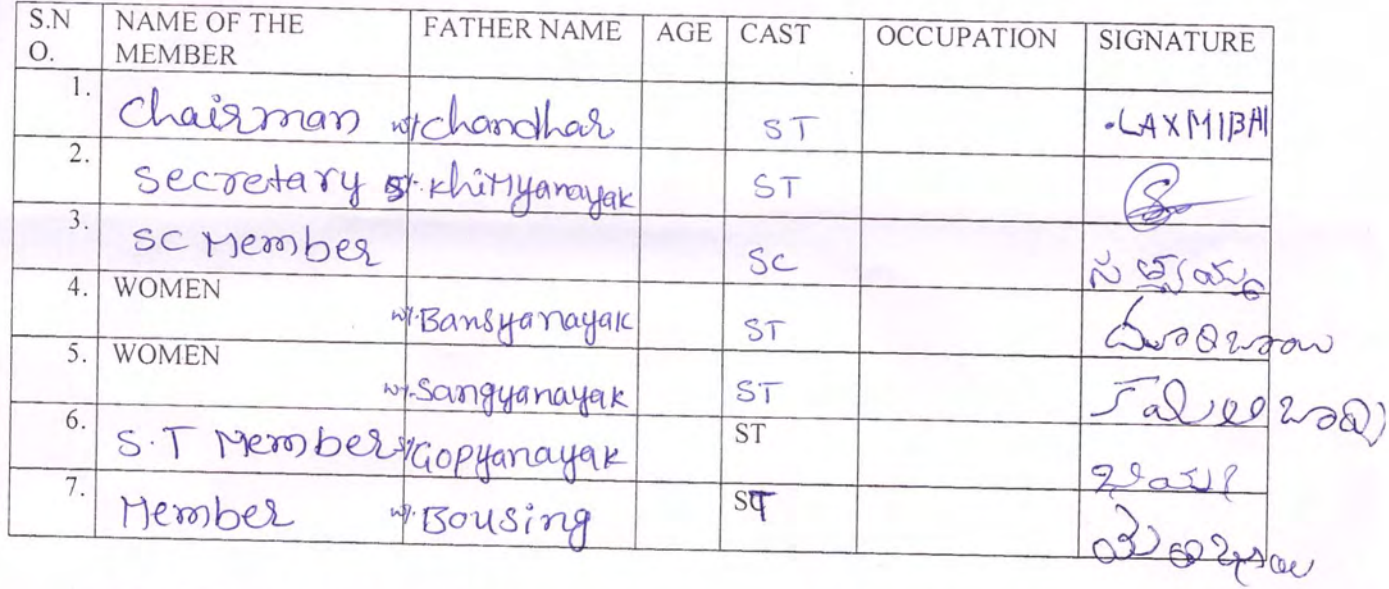 S.N O. NAME OF THE MEMBER FATHER NAME AGE CAST OCCUPATION SIGNATURE
1. Chairman w/. chandhar ST LAXMIBAI
2. Secretary S/. Khimyanayak ST
3. SC Member SC
4. WOMEN w/. Bansyanayak ST
5. WOMEN w/. Sangyanayak ST
6. S.T Member s/. Gopyanayak ST
7. Member w/. Bousing ST